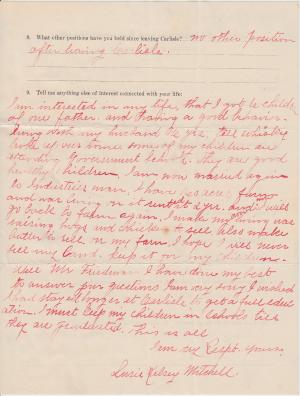 8. What other positions have you held since leaving Carlisle? no other position
after leaving Carlisle.
9. Tell me anything else of interest connected with your life:
I am interested in my life, that I got 6 childr
of one father. and having a good behavior
living with my husband yrs. till whiskey
broke up our home some of my children are
attending Government school. They are good
healthy children. I am now married again
to Industries man, I have 80 acres farm
and was living on it 2 yr. and will
go back to farm again. I make my living
raising hogs and chickens & sell also make
butter to sell on my farm. I hope I will never
sell my land. keep it for my children.
Mr. Friedman I have done my best
to answer your questions I am very sorry I
had stay longer at Carlisle to get a full educ
ation. I must keep my children in schools till
they are graduated. This is all
I am Respt. yours,
Susie Kelsey Mitchell.